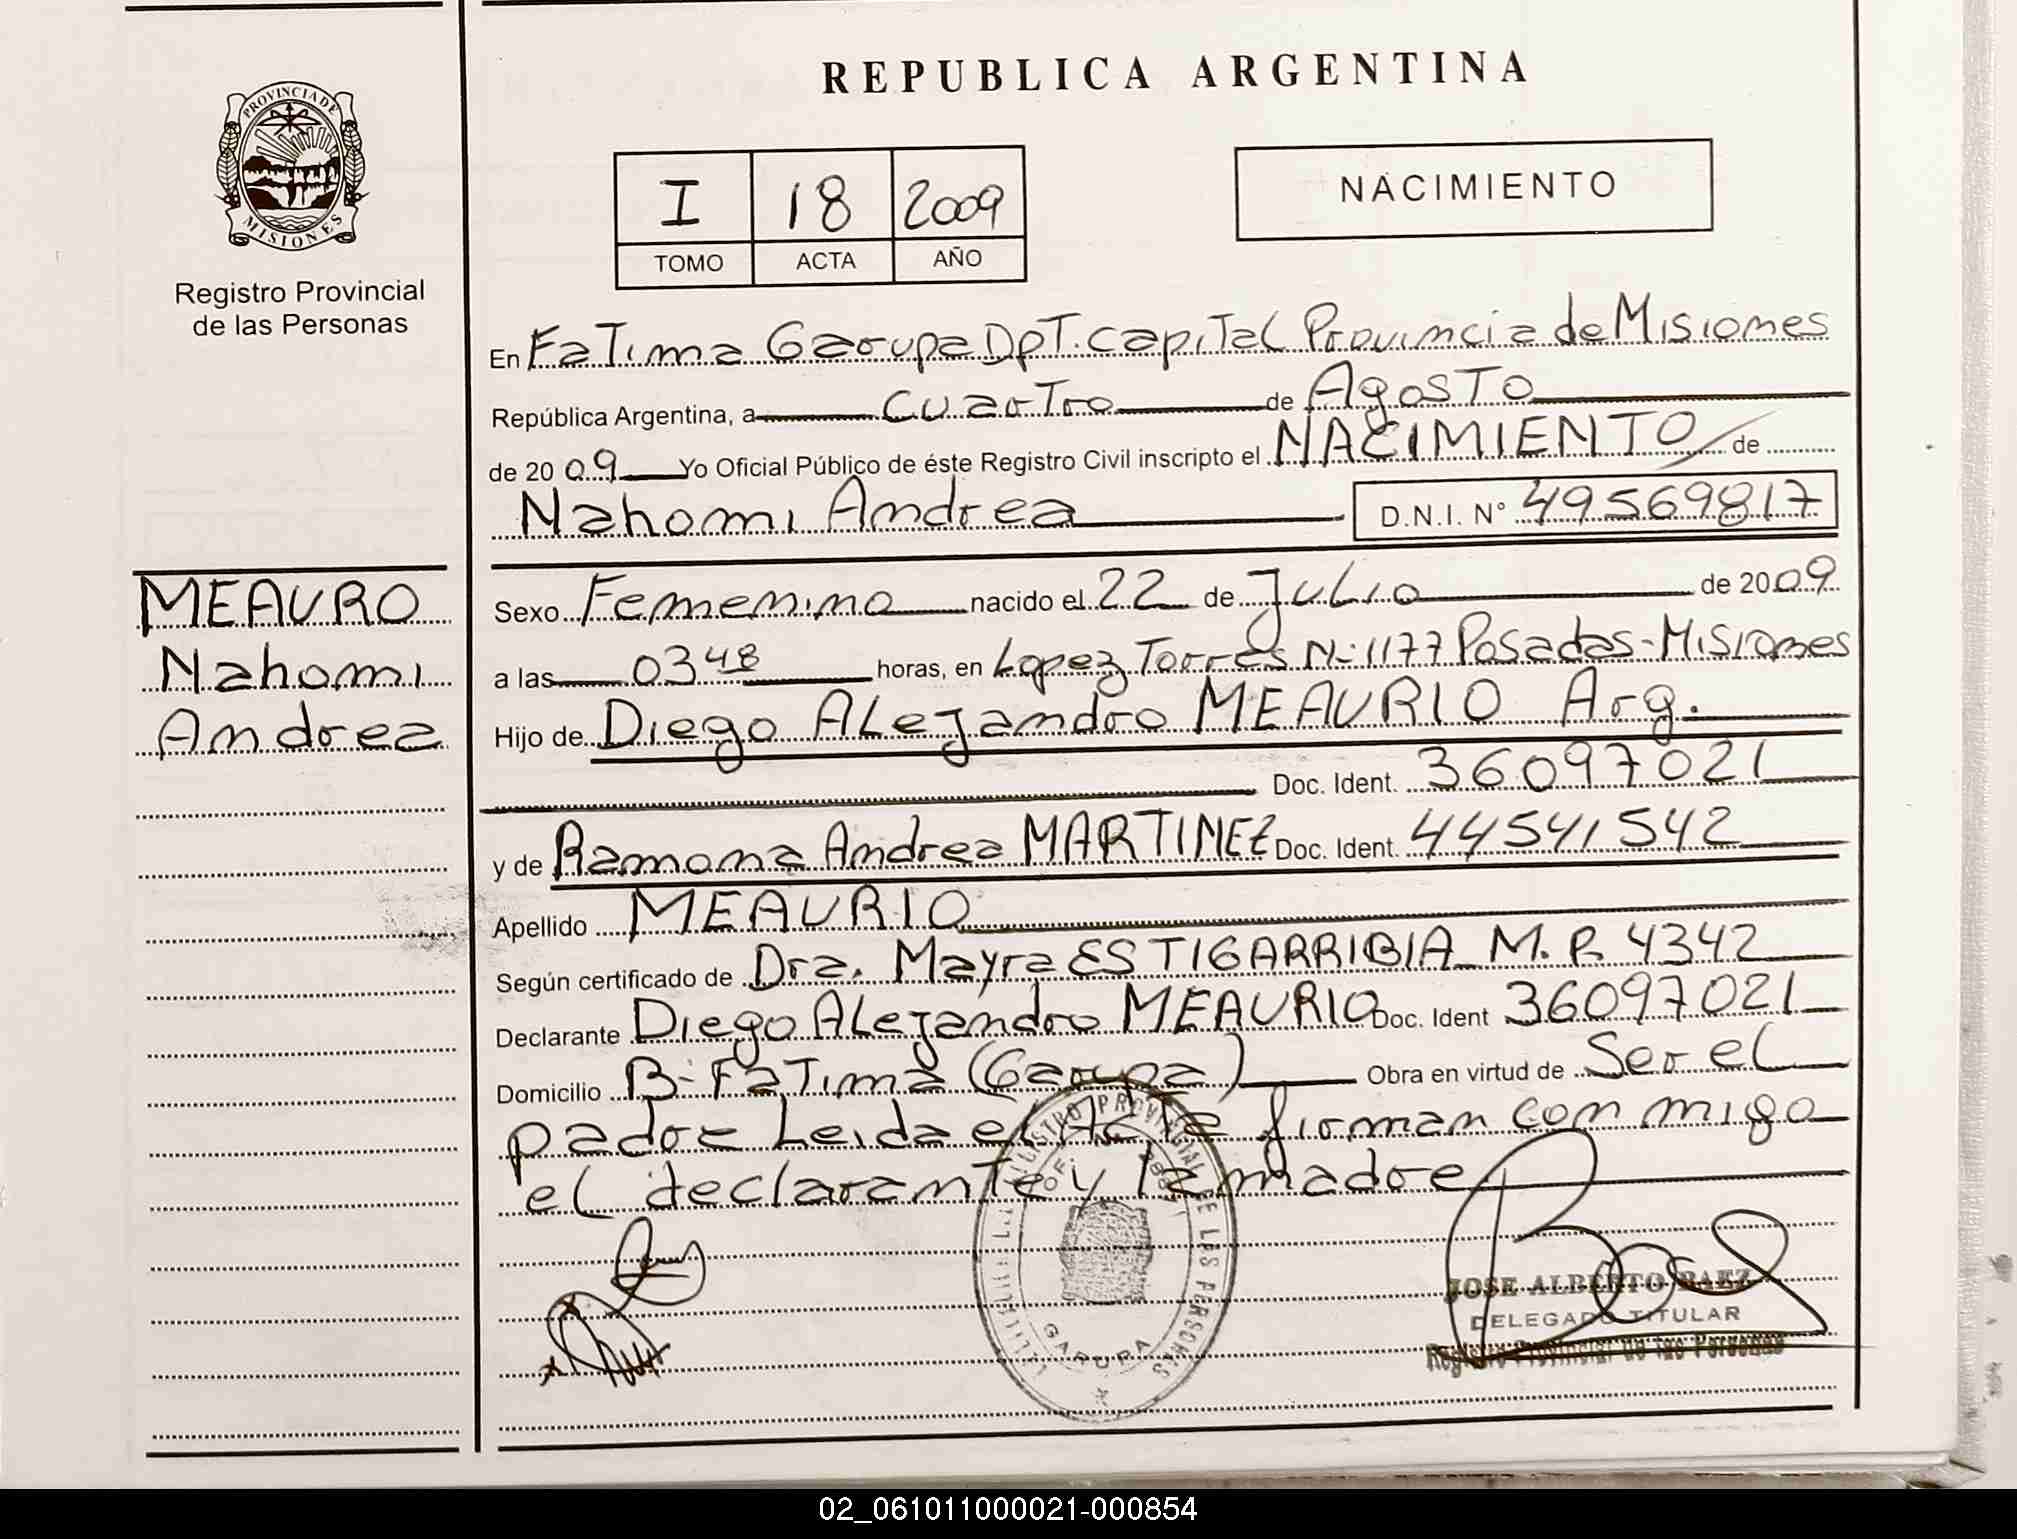 REPUBLICA ARGENTINA
PROVINCIA DE
MISIONES
Registro Provincial
de las Personas
I 18 2009
TOMO ACTA AÑO
NACIMIENTO
En Fatima Garupa Dpt. Capital Provincia de Misiones
República Argentina, a cuartro de Agosto
de 20 09 Yo Oficial Público de éste Registro Civil inscripto el NACIMIENTO de
Nahomi Andrea D.N.I. N° 49569817
MEAURO
Nahomi
Andrea
Sexo Femenino nacido el 22 de Julio de 2009
a las 0348 horas, en Lopez Torres N- 1177 Posadas - Misiones
Hijo de Diego Alejandro MEAURIO Arg.
Doc. Ident. 36097021
y de Ramona Andrea MARTINEZ Doc. Ident. 44541542
Apellido MEAURIO
Según certificado de Dra. Mayra ESTIGARRIBIA M.P. 4342
Declarante Diego Alejandro MEAURIO Doc. Ident 36097021
Domicilio B- Fatima (Garupa) Obra en virtud de Ser el
padre Leida el Acta firman con migo
el declarante y la madre
JOSE ALBERTO BAEZ
DELEGADO TITULAR
Registro Provincial de las Personas
REGISTRO PROVINCIAL DE LAS PERSONAS
GARUPA
02_061011000021-000854